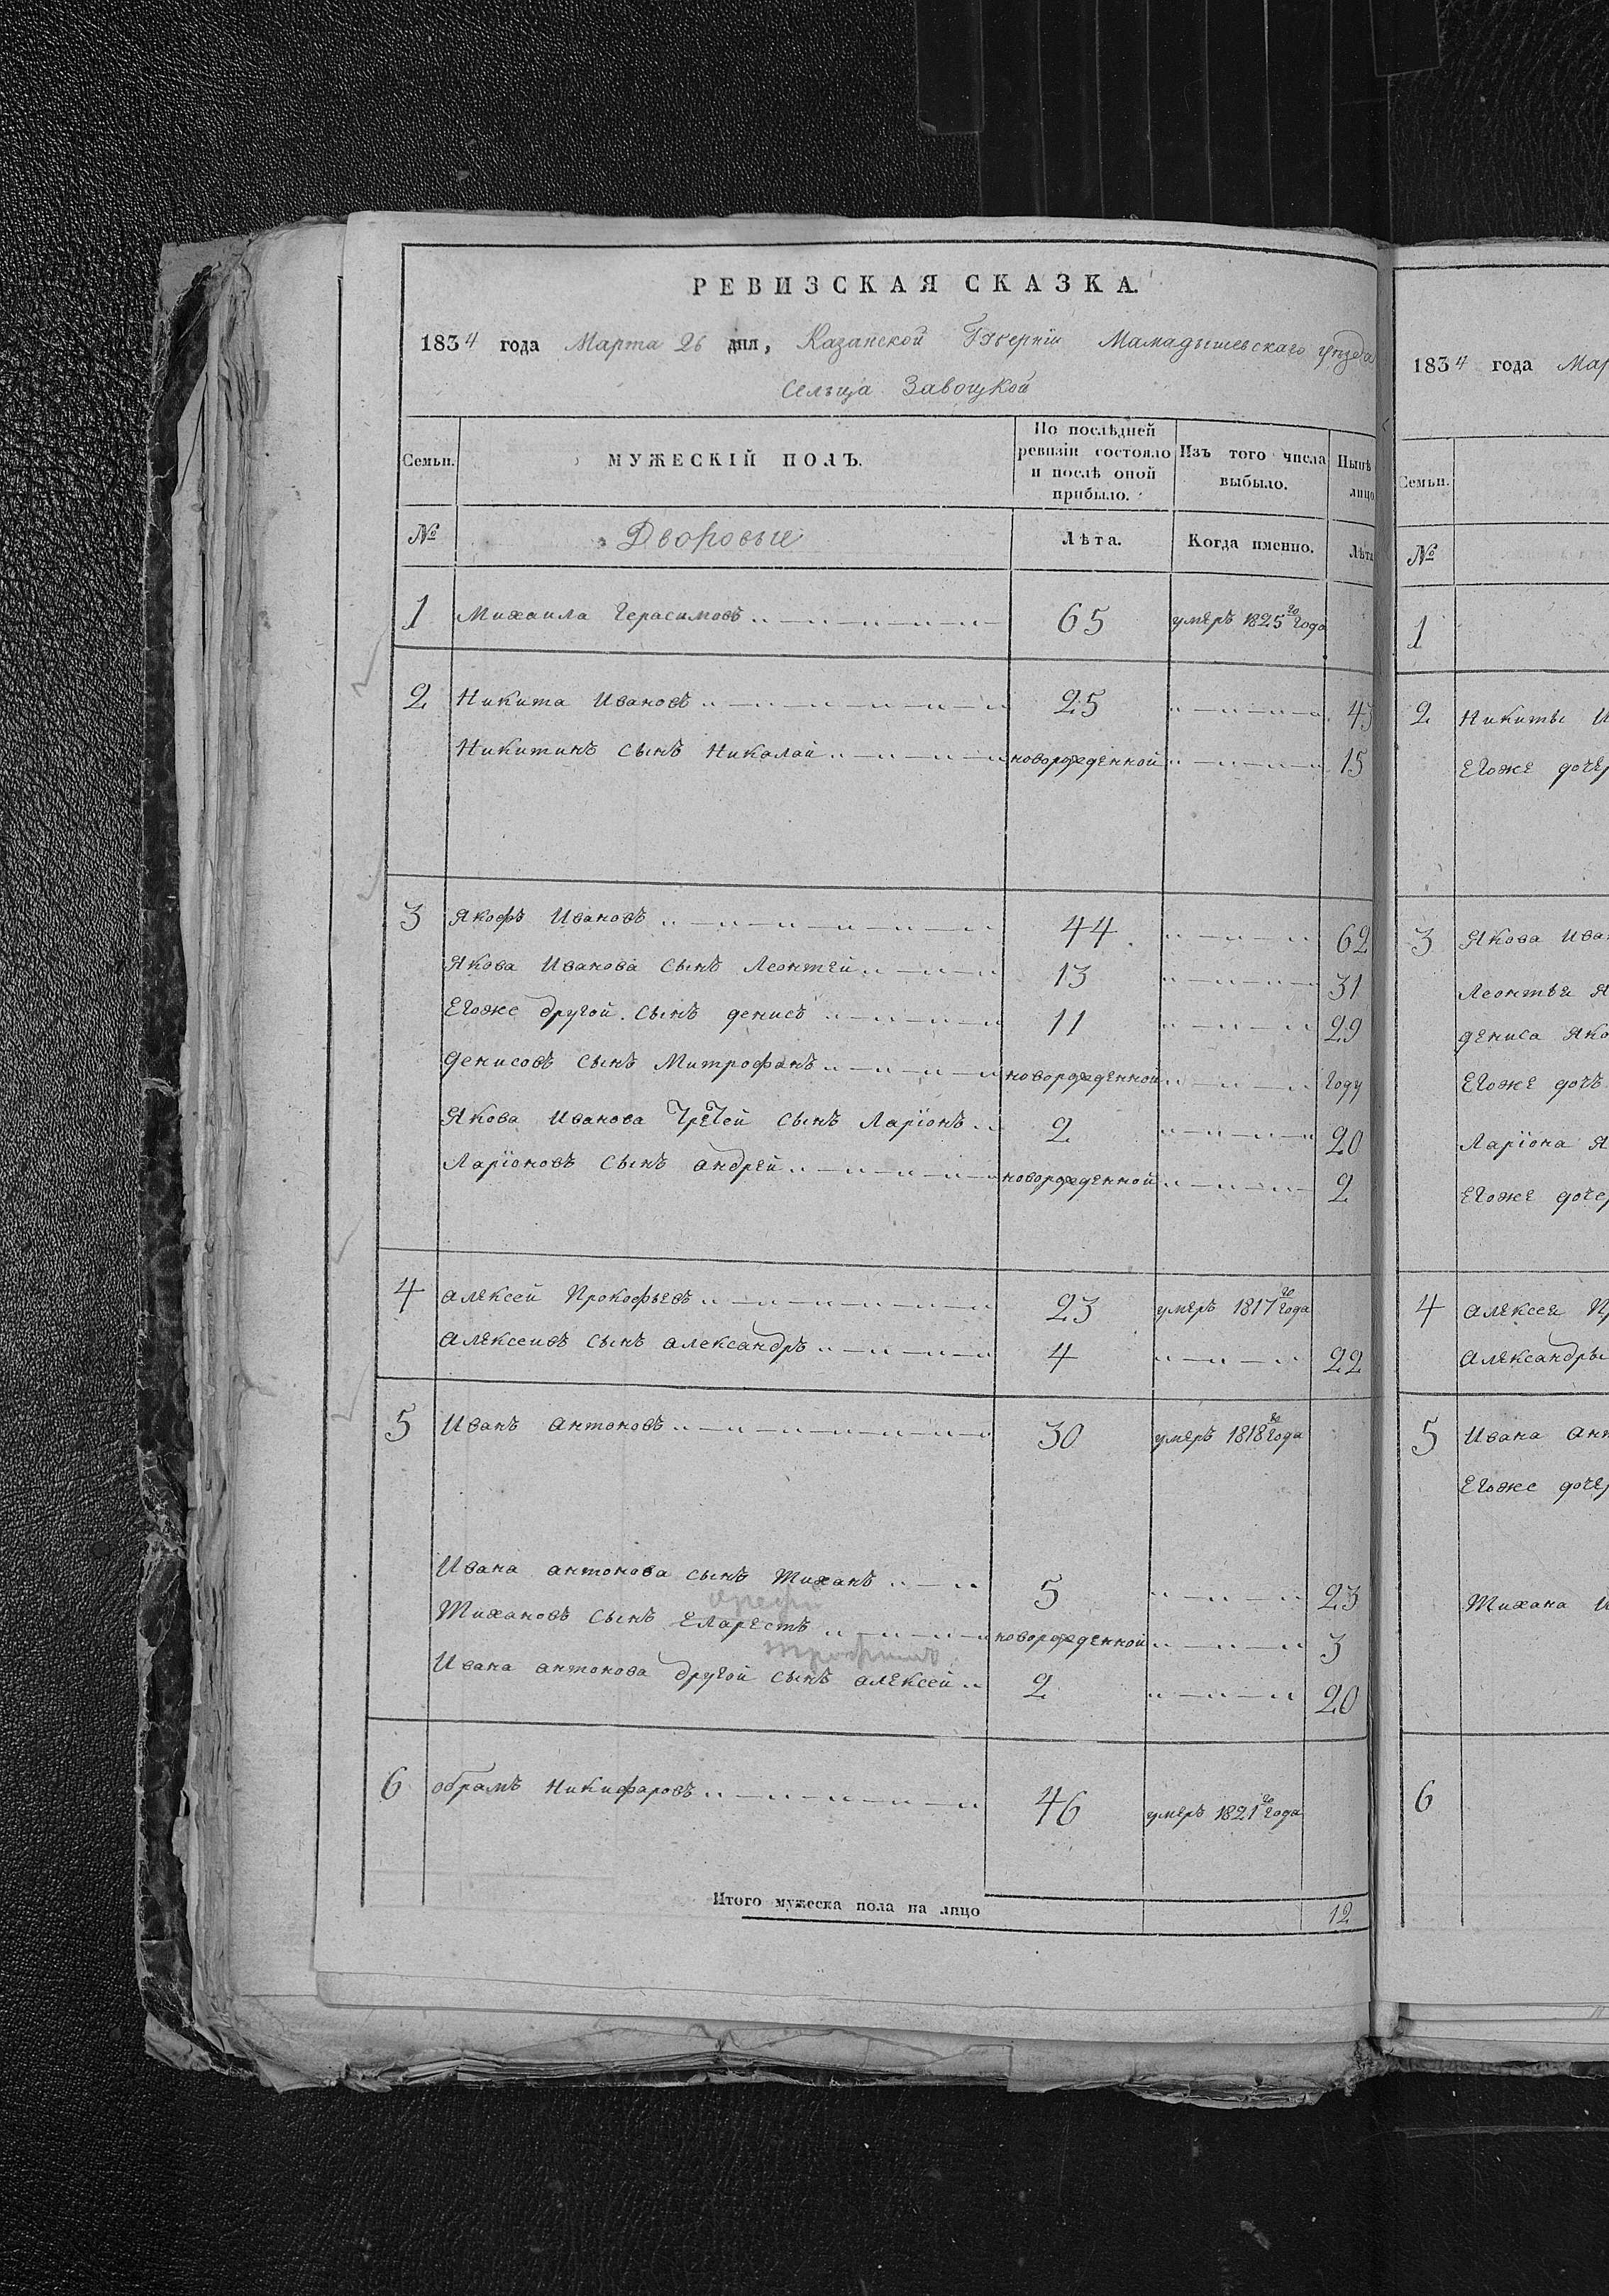 РЕВИЗСКАЯ СКАЗКА.
1834 года Марта 26 дня, Казанской Губерніи Мамадышевскаго уѣзда
Сельца Завоцкой
Семьи. МУЖЕСКІЙ ПОЛЪ. По послѣдней ревизіи состояло и послѣ оной прибыло. Изъ того числа выбыло. Нынѣ лицо
№ Дворовые Лѣта. Когда именно. Лѣта
1 Михаила Герасимовъ 65 умеръ 1825го года
2 Никита Ивановъ 25 43
Никитинъ сынъ Николай новорожденной 15
3 Якофъ Ивановъ 44 62
Якова Иванова сынъ Леонтей 13 31
Егоже другой сынъ денисъ 11 29
денисовъ сынъ Митрофанъ новорожденной году
Якова Иванова Третей сынъ Ларіонъ 2 20
Ларіоновъ сынъ андрей новорожденной 2
4 алексей Прокофьевъ 23 умеръ 1817го года
алексеивъ сынъ александръ 4 22
5 Иванъ антоновъ 30 умеръ 1818го года
Ивана антонова сынъ Тиханъ 5 23
Тихановъ сынъ Еларестъ новорожденной 3
Ивана антонова другой сынъ алексей 2 20
6 обрамъ Никифаровъ 46 умеръ 1821го года
Итого мужеска пола на лицо 12
1834 года Мар
Семьи.
№
1
2 Никиты И
Егоже дочер
3 Якова Иван
Леонтья Я
дениса Яко
Егоже дочь
Ларіона Я
Егоже дочер
4 алексея Пр
александры
5 Ивана ант
Егоже дочер
Тихана И
6